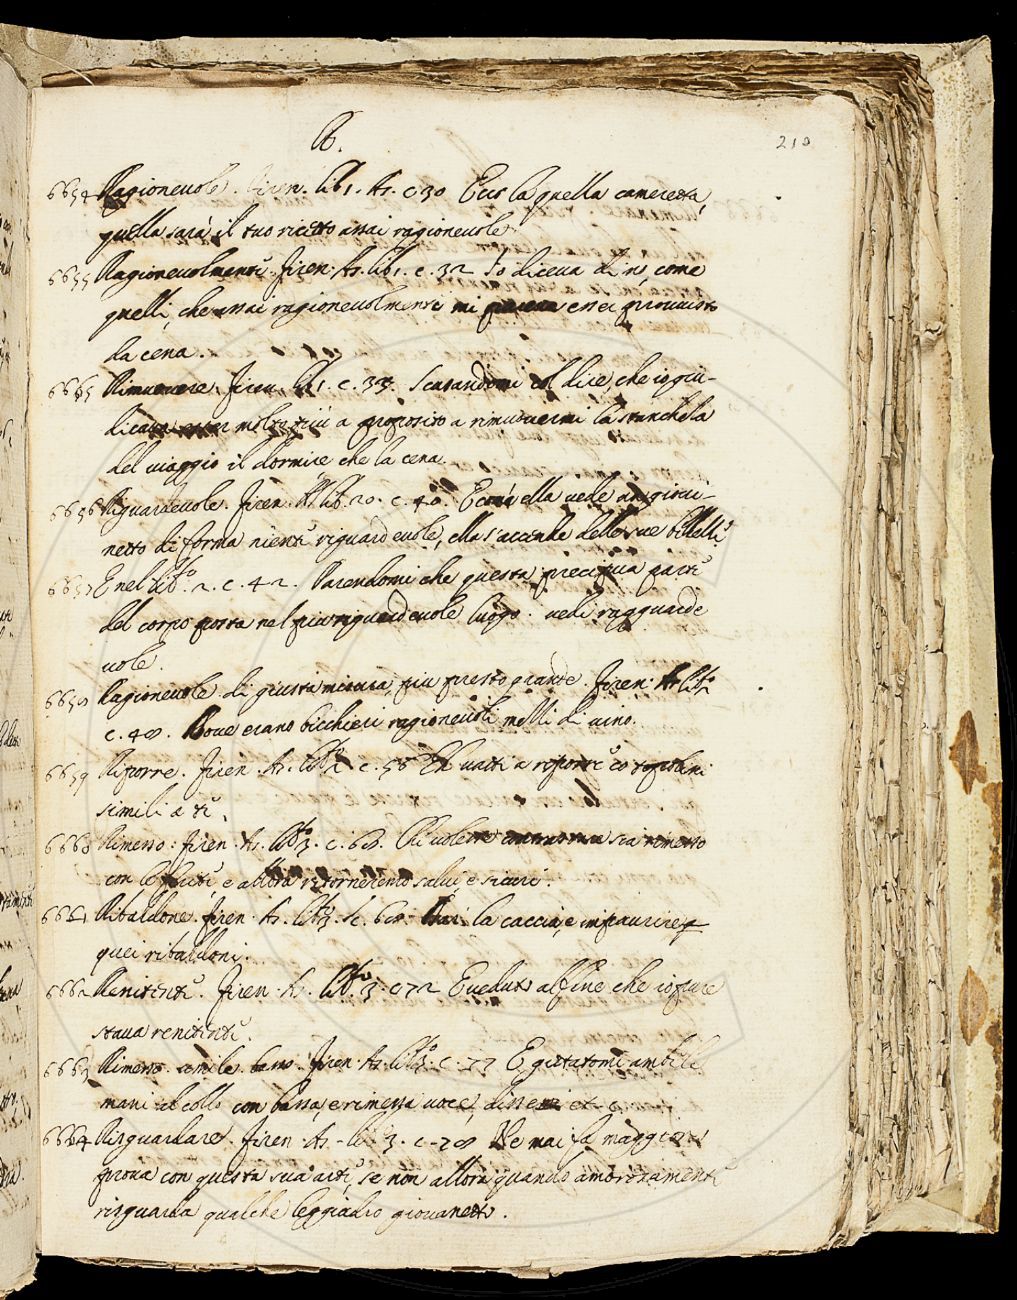 R.
210
6654 Ragionevole. Firen. lib. 1. As. c. 30 Ecco là quella cameretta,
quella sarà il tuo ricetto assai ragionevole.
6655 Ragionevolmente. Firen. As. lib. 1. c. 32 Io diceva di nò, come
quelli, che assai ragionevolmente mi esser provvisto
da cena.
6665 Rimuovere. Firen. lib. 1. c. 33. Scusandomi col dire, che io giu-
dicava esser molto più a proposito a rimuovermi la stanchezza
del viaggio il dormire che la cena.
6656 Riguardevole. Firen. As. lib. 2o. c. 40. ella vede un giova-
netto di forma niente riguardevole, ella s'accende delle sue bellezze
6657 E nel lib.o 2. c. 42. Parendomi che questa precipua parte
del corpo posta nel più riguardevole luogo. vedi ragguarde
vole.
6658 Ragionevole di giusta misura, più presto grande. Firen. As. lib. 2
c. 48. Dove erano bicchieri ragionevoli molli di vino.
6659 Riporre. Firen. As. lib. 2. c. 58 Eh vatti a riporre co
simili a te.
6660 Rimesso: Firen. As. lib.o 3. c. 60. sia rimesso
con le e allora ritorneremo salvi e sicuri.
6661 Ribaldone. Firen. As. lib. 3. c. la caccia, e impaurire
quei ribaldoni.
6662 Renitente. Firen. As. lib.o 3. c 72 E veduto alfine che io pure
stava renitente.
6663 Rimesso. umile. basso. Firen. As. lib.o 3. c. 77 E gittatomi ambe le
mani al collo con bassa, e rimessa voce, disse et c.
6664 Risguardare. Firen. As. lib.o 3. c. 78 Ne mai fa maggior
prova con questa sua arte, se non allora quando amorosamente
risguarda qualche leggiadro giovanetto.